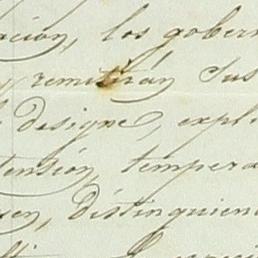 ación, los gobern
y remitirán sus
designe, expli
tensión, tempera
en, distinguien